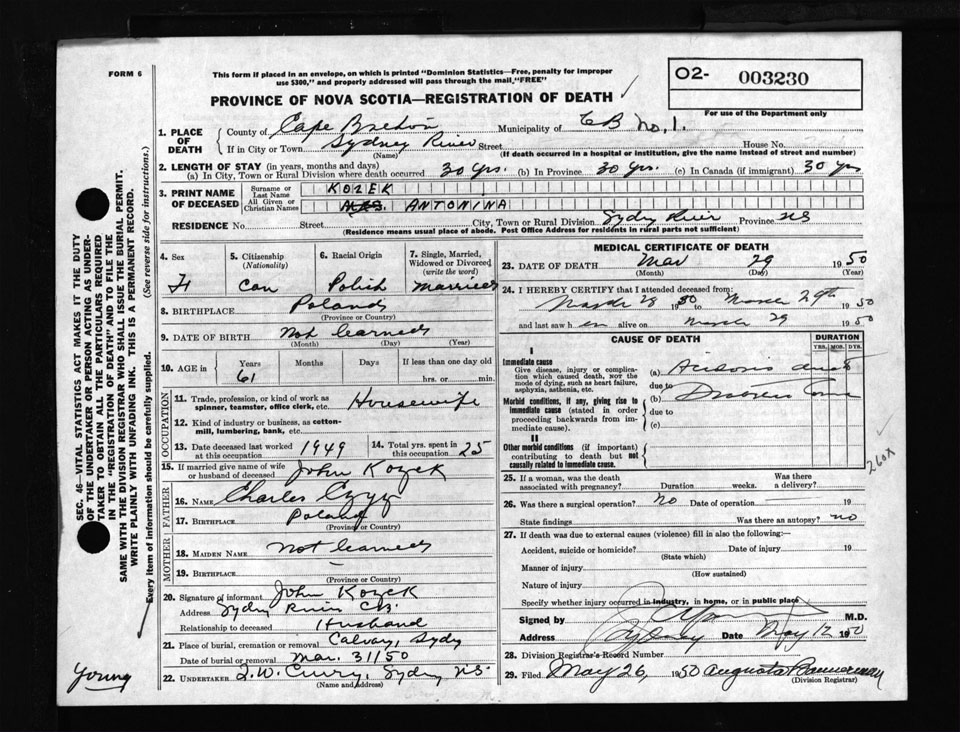 FORM 6
This form if placed in an envelope, on which is printed "Dominion Statistics—Free, penalty for improper
use $300," and properly addressed will pass through the mail, "FREE"
O2- 003230
For use of the Department only
PROVINCE OF NOVA SCOTIA—REGISTRATION OF DEATH
1. PLACE OF DEATH
County of Cape Breton Municipality of CB No. 1.
If in City or Town Sydney River Street House No.
(Name) (If death occurred in a hospital or institution, give the name instead of street and number)
2. LENGTH OF STAY (in years, months and days)
(a) In City, Town or Rural Division where death occurred 30 yrs. (b) In Province 30 yrs. (c) In Canada (if immigrant) 30 yrs
3. PRINT NAME OF DECEASED
Surname or Last Name KOZEK
All Given or Christian Names ANTONINA
RESIDENCE No. Street City, Town or Rural Division Sydney River Province NS
(Residence means usual place of abode. Post Office Address for residents in rural parts not sufficient)
4. Sex F
5. Citizenship (Nationality) Can
6. Racial Origin Polish
7. Single, Married, Widowed or Divorced (write the word) Married
8. BIRTHPLACE Poland
(Province or Country)
9. DATE OF BIRTH Not learned
(Month) (Day) (Year)
10. AGE in Years 61 Months Days If less than one day old
hrs. or min.
OCCUPATION
11. Trade, profession, or kind of work as
spinner, teamster, office clerk, etc. Housewife
12. Kind of industry or business, as cotton-
mill, lumbering, bank, etc.
13. Date deceased last worked at this occupation 1949
14. Total yrs. spent in this occupation 25
15. If married give name of wife or husband of deceased John Kozek
FATHER
16. NAME Charles
17. BIRTHPLACE Poland
(Province or Country)
MOTHER
18. MAIDEN NAME Not learned
19. BIRTHPLACE —
(Province or Country)
20. Signature of informant John Kozek
Address Sydney River CB.
Relationship to deceased Husband
21. Place of burial, cremation or removal Calvary, Sydy
Date of burial or removal Mar. 31/50
22. UNDERTAKER T.W. Curry, Sydney NS.
(Name and Address)
MEDICAL CERTIFICATE OF DEATH
23. DATE OF DEATH Mar 29 1950
(Month) (Day) (Year)
24. I HEREBY CERTIFY that I attended deceased from:
March 28 1950 to March 29th 1950
and last saw h er alive on March 29 1950
CAUSE OF DEATH
DURATION
YRS. MOS. DYS.
I
Immediate cause
Give disease, injury or complica-
tion which caused death, NOT the
mode of dying, such as heart failure,
asphyxia, asthenia, etc.
(a)
due to
Morbid conditions, if any, giving rise to
immediate cause (stated in order
proceeding backwards from im-
mediate cause).
(b) Diabetes Coma
due to
(c)
II
Other morbid conditions (if important)
contributing to death but not
causally related to immediate cause.
260X
25. If a woman, was the death associated with pregnancy? Duration weeks. Was there a delivery?
26. Was there a surgical operation? no Date of operation 19
State findings Was there an autopsy? no
27. If death was due to external causes (violence) fill in also the following:—
Accident, suicide or homicide? Date of injury 19
(State which)
Manner of injury
(How sustained)
Nature of injury
Specify whether injury occurred in industry, in home, or in public place
Signed by M.D.
Address Sydney Date May 12 1950
28. Division Registrar's Record Number
29. Filed May 26, 1950 Augusta Bannerman
(Division Registrar)
SEC. 46—VITAL STATISTICS ACT MAKES IT THE DUTY
OF THE UNDERTAKER OR PERSON ACTING AS UNDER-
TAKER TO OBTAIN ALL THE PARTICULARS REQUIRED
IN THE "REGISTRATION OF DEATH" AND TO FILE THE
SAME WITH THE DIVISION REGISTRAR WHO SHALL ISSUE THE BURIAL PERMIT.
WRITE PLAINLY WITH UNFADING INK. THIS IS A PERMANENT RECORD.
Every item of information should be carefully supplied. (See reverse side for instructions.)
Young